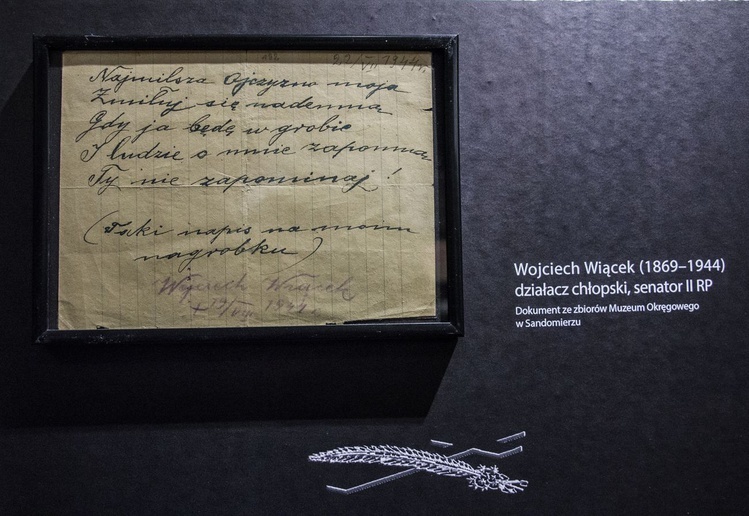 22/VII 1944r.
Najmilsza Ojczyzno moja
Zmiłuj się nademną
Gdy ja będę w grobie
I ludzie o mnie zapomną
Ty nie zapominaj !
(Taki napis na moim
nagrobku)
Wojciech Wiącek
1944r.
Wojciech Wiącek (1869–1944)
działacz chłopski, senator II RP
Dokument ze zbiorów Muzeum Okręgowego
w Sandomierzu